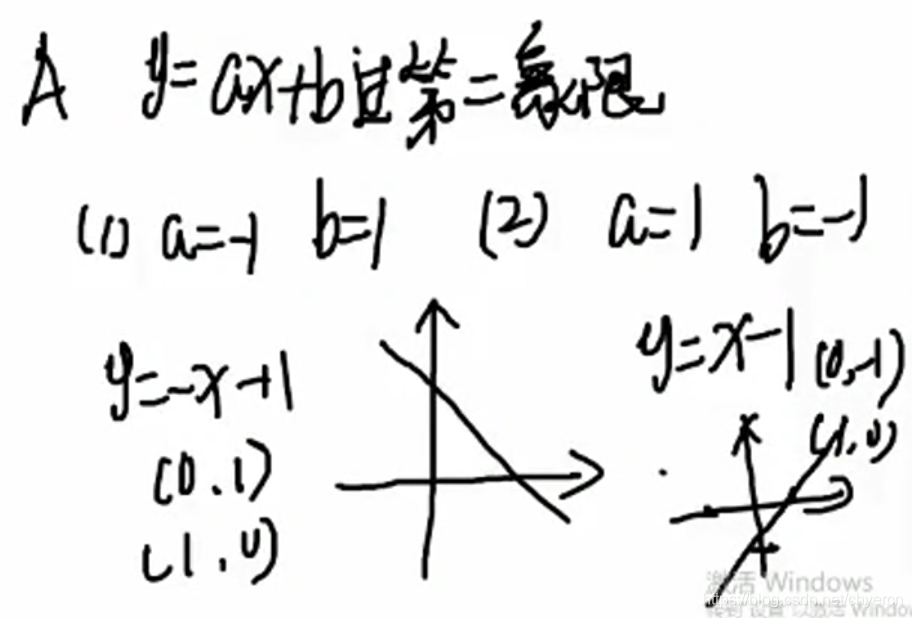 A y=ax+b过第二象限
(1) a=-1 b=1 (2) a=1 b=-1
y=-x+1
(0,1)
(1,0)
y=x-1 (0,-1)
(1,0)
激活 Windows
转到"设置"以激活 Window
https://blog.csdn.net/chyercn